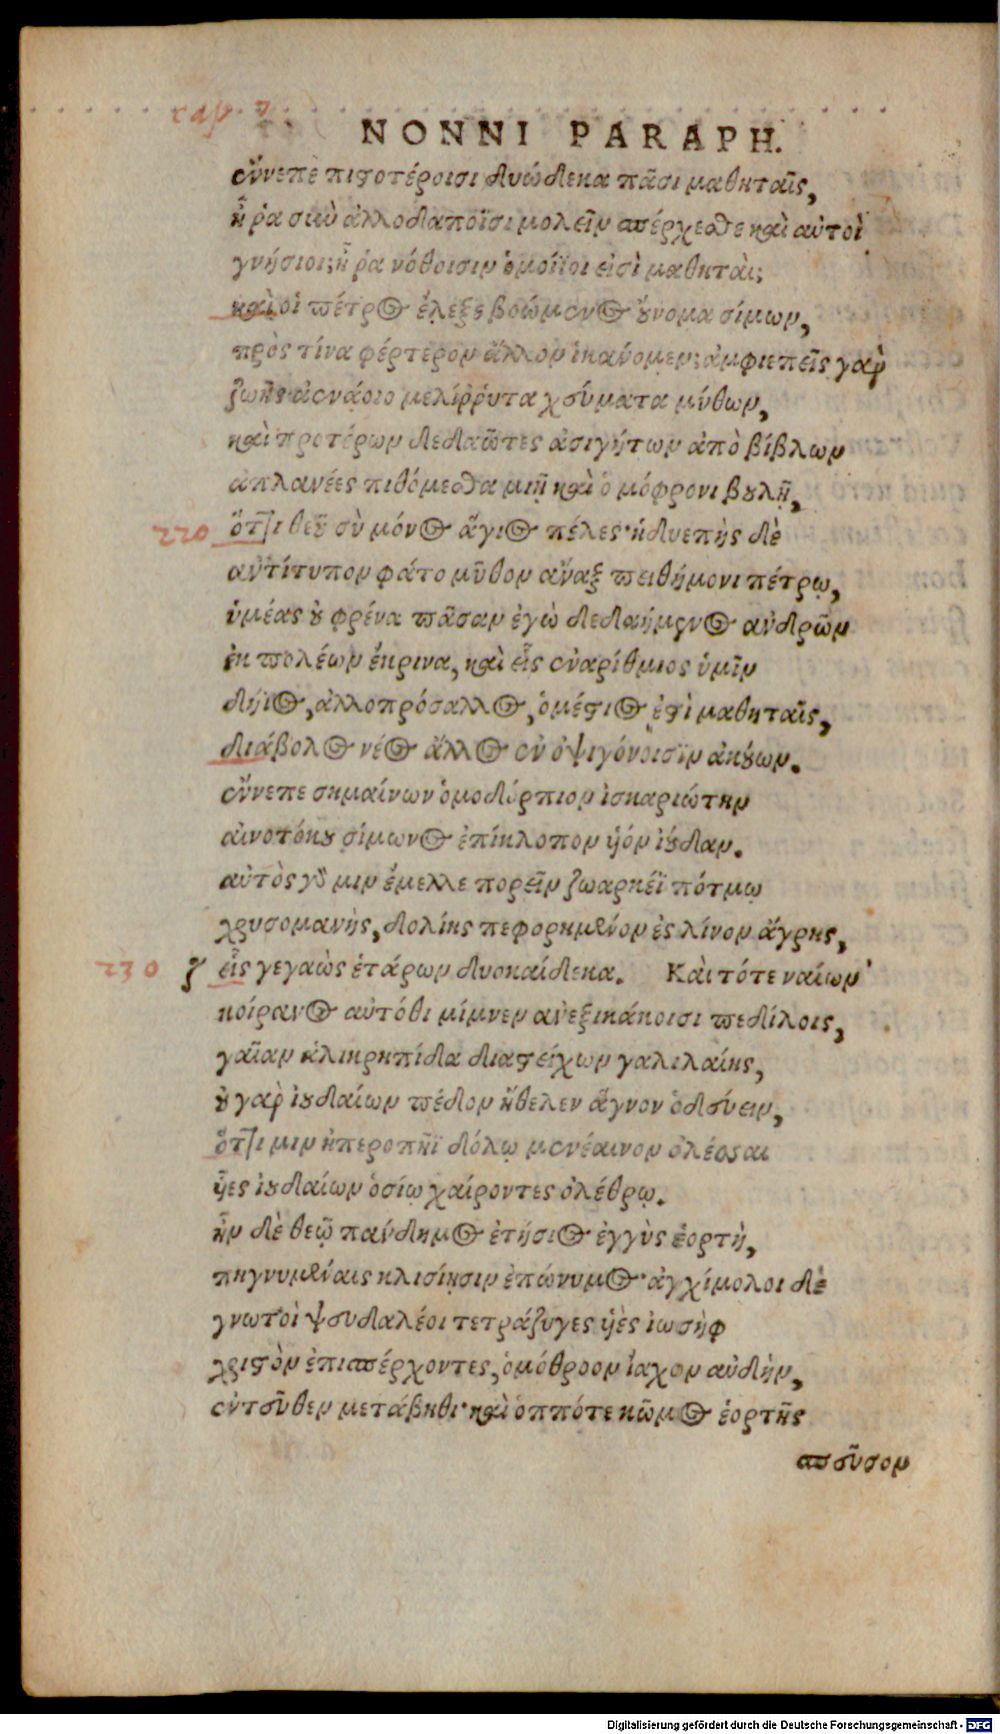 cap. 7
NONNI PARAPH.
ἔννεπε πιστοτέροισι δυώδεκα πᾶσι μαθηταῖς,
ἦ ῥα σὺν ἀλλοδαποῖσι μολεῖν σπέρχεσθε καὶ αὐτοὶ
γνήσιοι; ἦ ῥα νόθοισιν ὁμοίϊοι εἰσὶ μαθηταὶ;
καὶ οἱ πέτρος ἔλεξε βοώμενος οὔνομα σίμων,
πρὸς τίνα φέρτερον ἄλλον ἱκάνομεν; ἀμφιεπεῖς γὰρ
ζωῆς ἀενάοιο μελίρρυτα χεύματα μύθων,
καὶ προτέρων δεδαῶτες ἀσιγήτων ἀπὸ βίβλων
ἀπλανέες πιθόμεσθα μιῇ καὶ ὁμόφρονι βουλῇ,
220 ὅττι θεοῦ σὺ μόνος ἅγιος πέλες· ἡδυεπὴς δὲ
ἀντίτυπον φάτο μῦθον ἄναξ πειθήμονι πέτρῳ,
ὑμέας οὐ φρένα πᾶσαν ἐγὼ δεδαήμενος ἀνδρῶν
ἐκ πολέων ἔκρινα, καὶ εἷς ἐναρίθμιος ὑμῖν
δήϊος, ἀλλοπρόσαλλος, ὁμέστιος ἐστὶ μαθηταῖς,
διάβολος νέος ἄλλος ἐν ὀψιγόνοισϊν ἀκούων.
ἔννεπε σημαίνων ὁμοδόρπιον ἰσκαριώτην
αἰνοτόκου σίμωνος ἐπίκλοπον υἱόν ἰούδαν.
αὐτὸς γάρ μιν ἔμελλε πορεῖν ζωαρκέϊ πότμῳ
χρυσομανὴς, δολίης πεφορημένον ἐς λίνον ἄγρης,
230 ζ εἷς γεγαὼς ἑτάρων δυοκαίδεκα. Καὶ τότε ναίων
κοίρανος αὐτόθι μίμνεν ἀνεξικάκοισι πεδίλοις,
γαῖαν κλικρηπίδα διαστείχων γαλιλαίης,
οὐ γὰρ ἰουδαίων πέδον ἤθελεν ἁγνὸν ὁδεύειν,
ὅττι μιν ἠπεροπῆϊ δόλῳ μενέαινον ὀλέσσαι
υἷες ἰουδαίων ὁσίῳ χαίροντες ὀλέθρῳ.
ἦν δὲ θεῷ πάνδημος ἐτήσιος ἐγγὺς ἑορτὴ,
πηγνυμέναις κλισίῃσιν ἐπώνυμος· ἀγχίμολοι δὲ
γνωτοὶ ψευδαλέοι τετράζυγες υἱὲς ἰωσὴφ
χριστὸν ἐπισπέρχοντες, ὁμόθροον ἴαχον αὐδὴν,
ἐντεῦθεν μετάβηθι· καὶ ὁππότε κῶμος ἑορτῆς
σπεῦσον
Digitalisierung gefördert durch die Deutsche Forschungsgemeinschaft - DFG